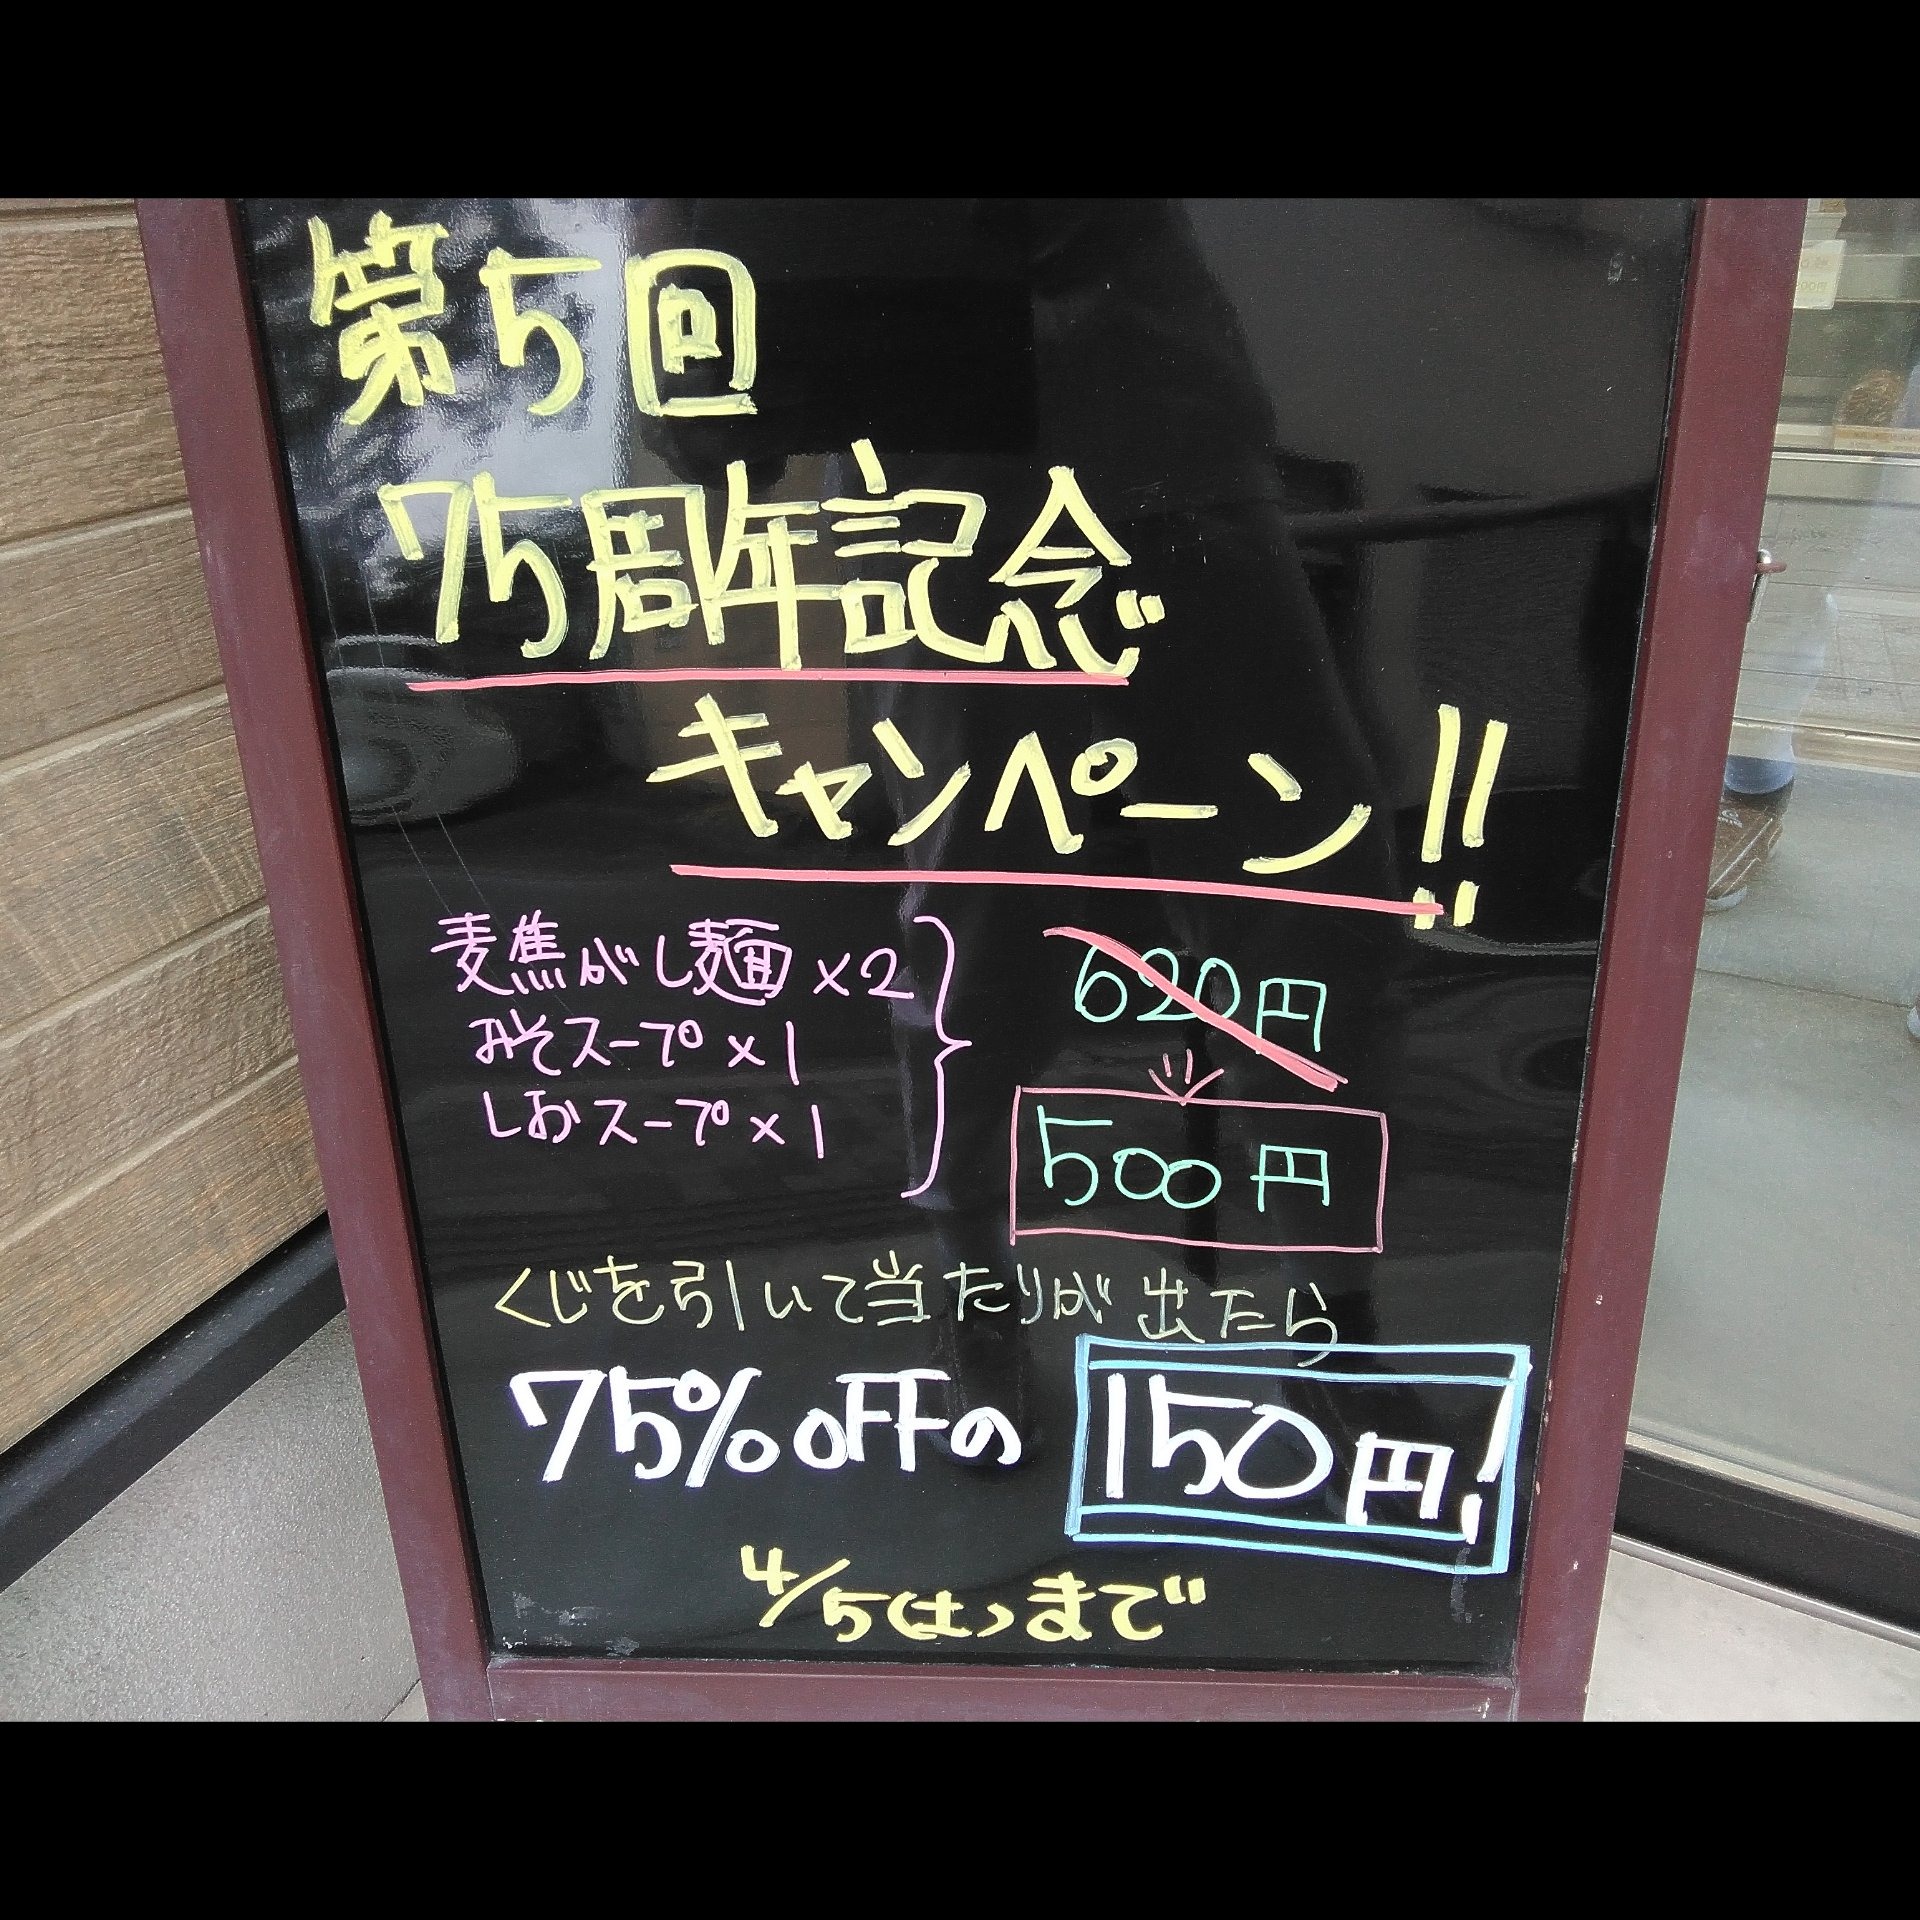 第5回
75周年記念
キャンペーン!!
麦焦がし麺×2
みそスープ×1
しおスープ×1
620円
500円
くじを引いて当たりが出たら
75%OFFの 150円!
4/5(土)まで